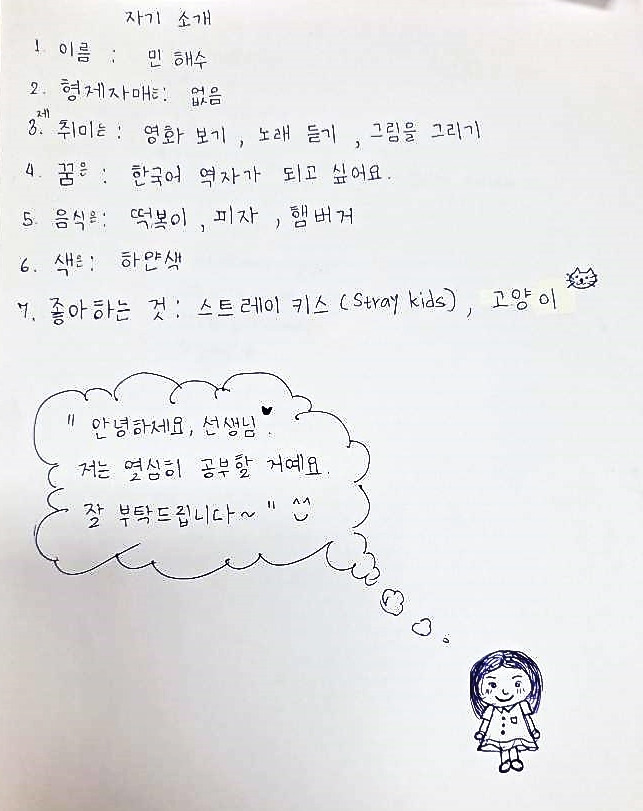 자기 소개
1. 이름 : 민 해수
2. 형제자매는: 없음
3. 제 취미는 : 영화 보기 , 노래 듣기 , 그림을 그리기
4. 꿈은 : 한국어 역자가 되고 싶어요.
5. 음식은: 떡볶이 , 피자 , 햄버거
6. 색은: 하얀색
7. 좋아하는 것 : 스트레이 키스 (Stray kids) , 고양이
" 안녕하세요, 선생님 .
저는 열심히 공부할 거예요.
잘 부탁드립니다~ " ^^